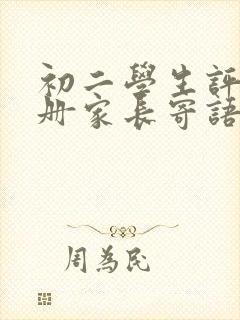 初二學生評
册家長寄語
周為民